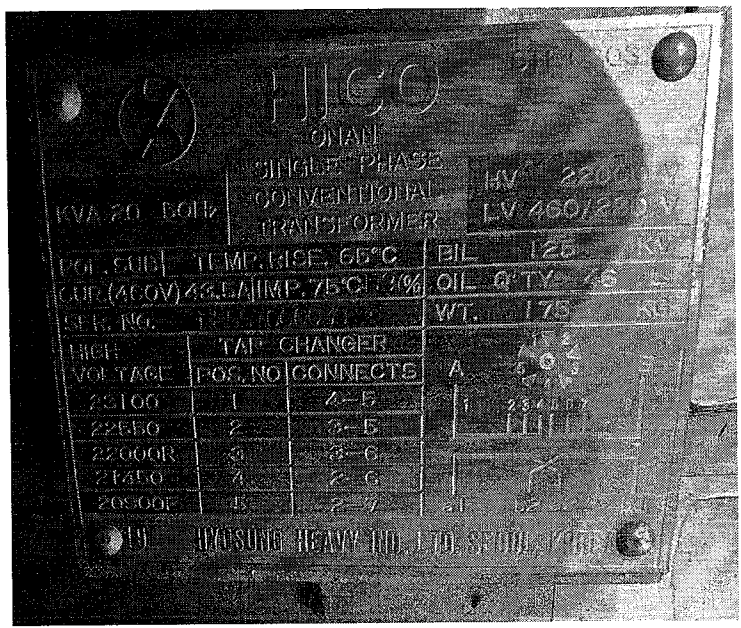 HICO
ONAN
SINGLE PHASE
CONVENTIONAL
TRANSFORMER
KVA 20 60Hz
HV 22000 V
LV 460/230 V
POL. SUB TEMP. RISE. 65°C BIL 125 KV
CUR.(460V) 43.5A IMP. 75°C % OIL Q'TY 46 L
SER. NO. WT. 175 KG
HIGH VOLTAGE TAP CHANGER
POS. NO CONNECTS A
23100 1 4-5
22550 2 3-5
22000R 3 3-6
21450 4 2-6
20900F 5 2-7
1 2 3 4 5 6 7
HYOSUNG HEAVY IND. LTD. SEOUL, KOREA